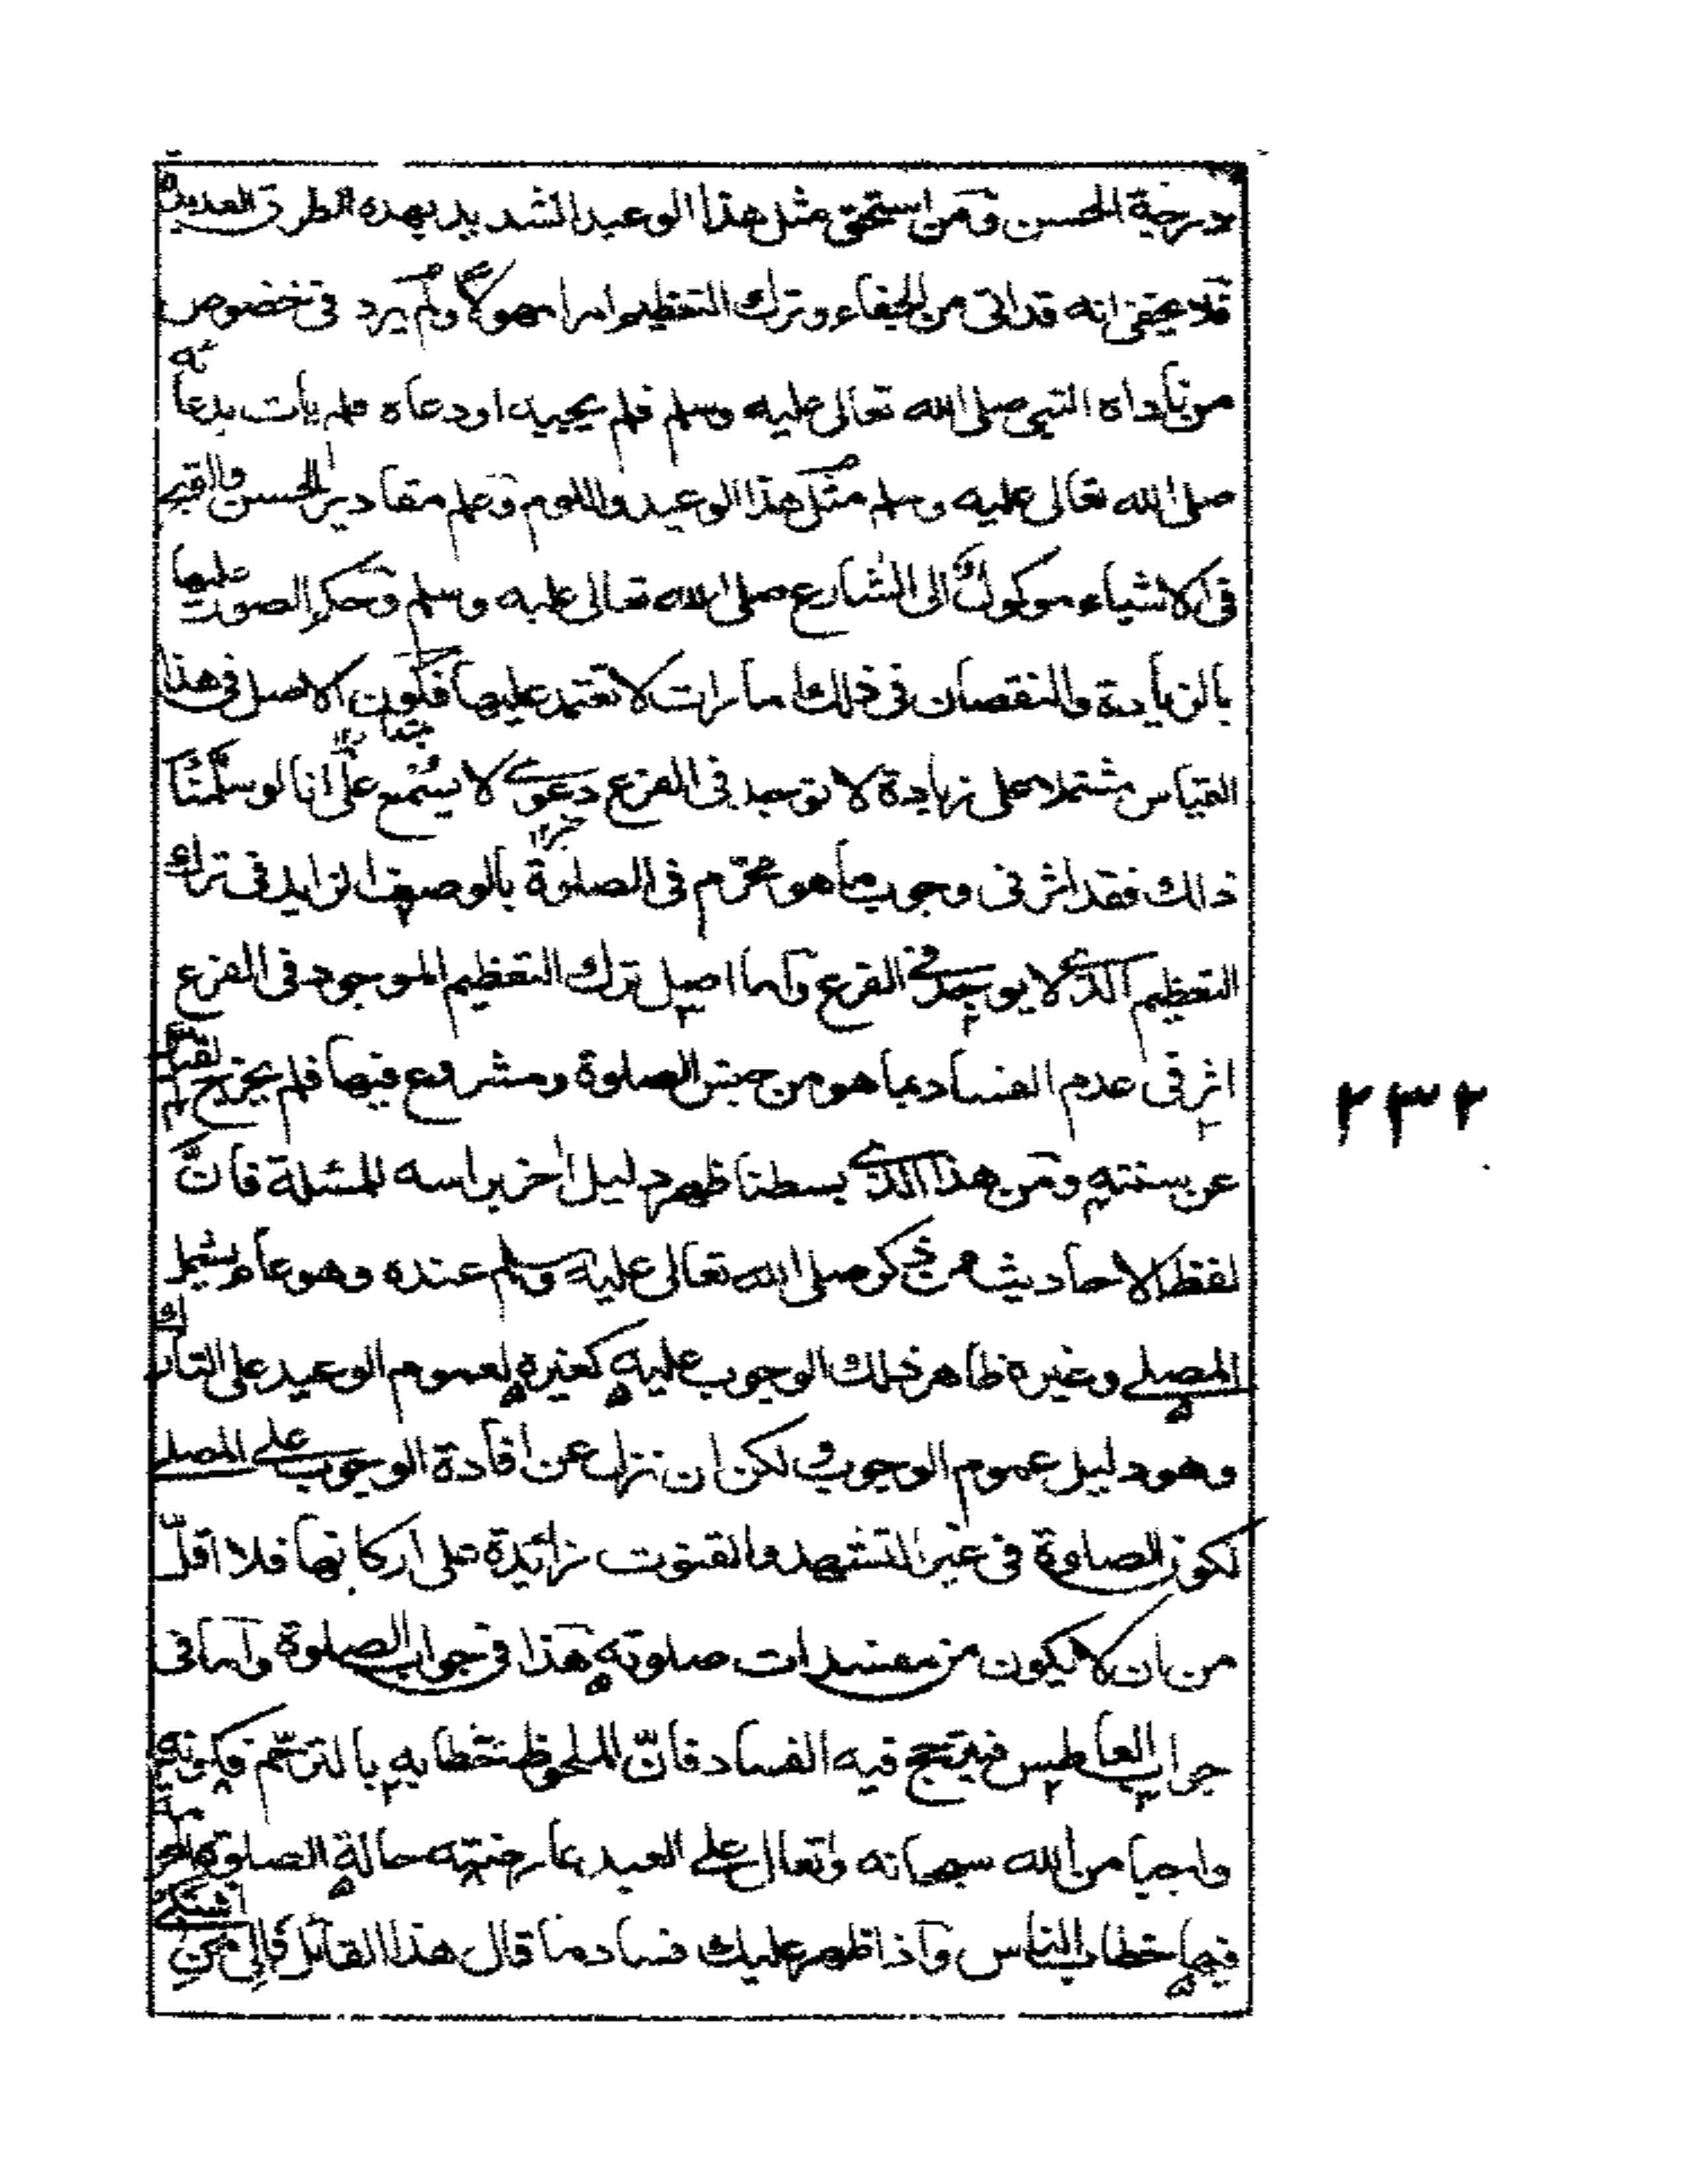 درجة الحسن ومن استحق مثل هذا الوعيد الشديد بهذه الطرق العديدة
فلا يخفى انه قد اتى من الجفاء وترك التعظيم امرا مهولا ولم يرد في خصوص
من ناداه النبي صلى الله تعالى عليه وسلم فلم يجيبه او دعاه فلم يات بدعائه
صلى الله تعالى عليه وسلم مثل هذا الوعيد واللوم وعلم مقادير الحسن والقبح
في الاشياء موكول الى الشارع صلى الله تعالى عليه وسلم وحكم الصوت عليها
بالزيادة والنقصان في ذلك امارات لا تعتمد عليها فكون الاصل في هذا
القياس مشتملا على زيادة لا توجد في الفرع دعوى لا يستمع على انا لو سلمنا
ذالك فقد اثر في وجوب ما هو محرم في الصلوة بالوصف الزايد في ترك
التعظيم الذى لا يوجد في الفرع واما اصل ترك التعظيم الموجود في الفرع
اثر في عدم الفساد بما هو من جنس الصلوة ومشروع فيها فلم يخرج
عن سننه ومن هذا الذى بسطنا ظهر دليل اخر براسه للمسئلة فانّ
لفظ الاحاديث من ذكر صلى الله تعالى عليه وسلم عنده وهو عام يشمل
المصلى وغيره ظاهر ذلك الوجوب عليه كغيره لعموم الوعيد على التارك
وهو دليل عموم الوجوب ولكن ان نزل عن افادة الوجوب على المصلى
لكون الصلوة في غير التشهد والقنوت زائدة على اركانها فلا اقلّ
من ان لا يكون من مفسدات صلوته هذا في جواب الصلوة واما في
جواب العاطس فيتجح فيه الفساد فانّ الملحوظ خطابه بالترحم فكونه
واجبا من الله سبحانه وتعالى على العبد عارضته حالة الصلوة
فيها خطاب الناس واذا ظهر عليك فساد ما قال هذا القائل فالى من اشتكى
٢٣٢